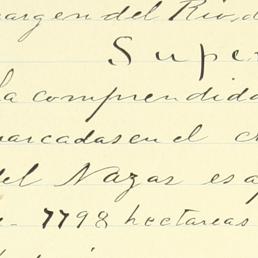 margen del Rio, d
Supe
la comprendida
marcadas en el
del Nazas es a
7798 hectareas